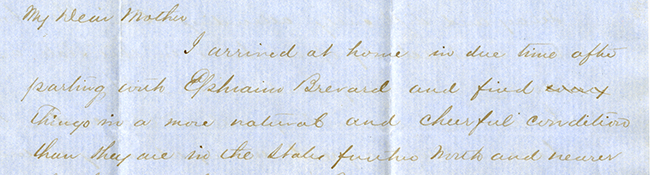 My Dear Mother
I arrived at home in due time after
parting with Ephraim Brevard and find
things in a more natural and cheerful condition
than they are in the States further North and nearer